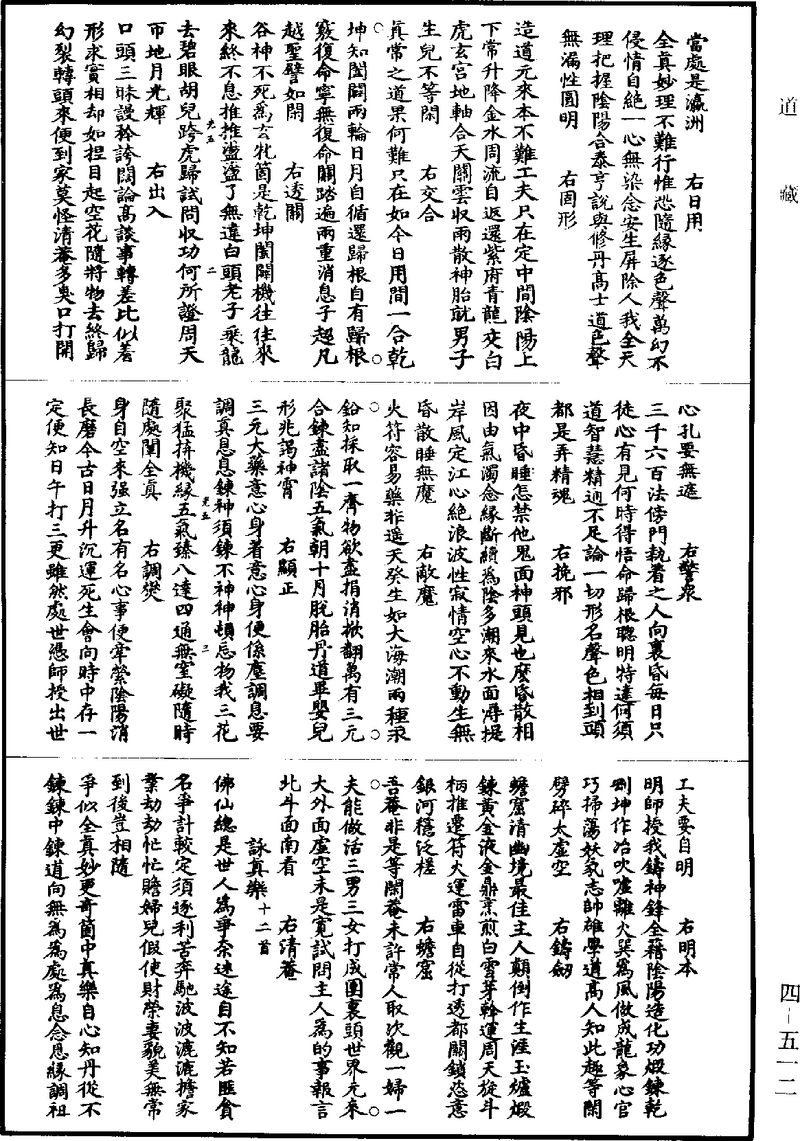 道藏
當處是瀛洲　　右日用
全真妙理不難行惟恐隨緣逐色聲萬幻不
侵情自絕一心無染念安生屏除人我全天
理把握陰陽合泰亨說與修丹高士道色聲
無漏性圓明　　右固形
造道元來本不難工夫只在定中間陰陽上
下常升降金水周流自返還紫府青龍交白
虎玄宮地軸合天關雲收雨散神胎就男子
生兒不等閑　　右交合
真常之道果何難只在如今日用間一合乾
坤知闔闢兩輪日月自循還歸根自有歸根
竅復命寧無復命關踏遍兩重消息子超凡
越聖譬如閑　　右透關
谷神不死為玄牝箇是乾坤闔闢機往往來
來終不息推推盪盪了無違白頭老子乘龍
去碧眼胡兒跨虎歸試問收功何所證周天
帀地月光輝　　右出入
口頭三昧謾矜誇闊論高談事轉差比似著
形求實相却如捏目起空花隨將物去終歸
幻裂轉頭來便到家莫怪清菴多臭口打開
心孔要無遮　　右警衆
三千六百法傍門執着之人向裏昏每日只
徒心有見何時得悟命歸根聰明特達何須
道智慧精通不足論一切形名聲色相到頭
都是弄精魂　　右挽邪
夜中昏睡怎禁他鬼面神頭見也麽昏散相
因由氣濁念緣斷續為陰多潮來水面尋提
岸風定江心絕浪波性寂情空心不動生無
昏散睡無魔　　右敵魔
火符容易藥非遥天癸生如大海潮兩種汞
鉛知採取一齊物欲盡捐消掀翻萬有三元
合鍊盡諸陰五氣朝十月脫胎丹道畢嬰兒
形兆謁神霄　　右顯正
三元大藥意心身着意心身便係塵調息要
調真息息鍊神須鍊不神神頓忘物我三花
聚猛拚機緣五氣臻八達四通無窒礙隨時
隨處闡全真　　右調燮
身自空來强立名有名心事便牽縈陰陽消
長磨今古日月升沉運死生會向時中存一
定便知日午打三更雖然處世憑師授出世
工夫要自明　　右明本
明師授我鑄神鋒全藉陰陽造化功煅鍊乾
剛坤作冶吹噓離火巽為風做成龍象心官
巧掃蕩妖氛志帥雄學道高人知此趣等閑
劈碎太虚空　　右鑄劒
蟾窟清幽境最佳主人顛倒作生涯玉爐煅
鍊黄金液金鼎烹煎白雪芽斡運周天旋斗
柄推遷符火運雷車自從打透都關鎖恣意
銀河穩泛槎　　右蟾窟
吾菴非是等閑菴未許常人取次觀一婦一
夫能做活三男三女打成團裏頭世界元來
大外面虚空未是寬試問主人為的事報言
北斗面南看　　右清菴
詠真樂十二首
佛仙總是世人為爭柰迷途自不知若匪貪
名爭計較定須逐利苦奔馳波波漉漉擔家
業劫劫忙忙贍婦兒假使財榮妻貌美無常
到後豈相隨
爭似全真妙更竒箇中真樂自心知丹從不
鍊鍊中鍊道向無為為處為息念息緣調祖
四－五一二